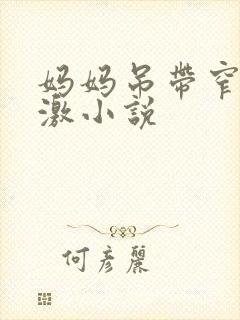 妈妈吊带窄
激小说
何彦丽